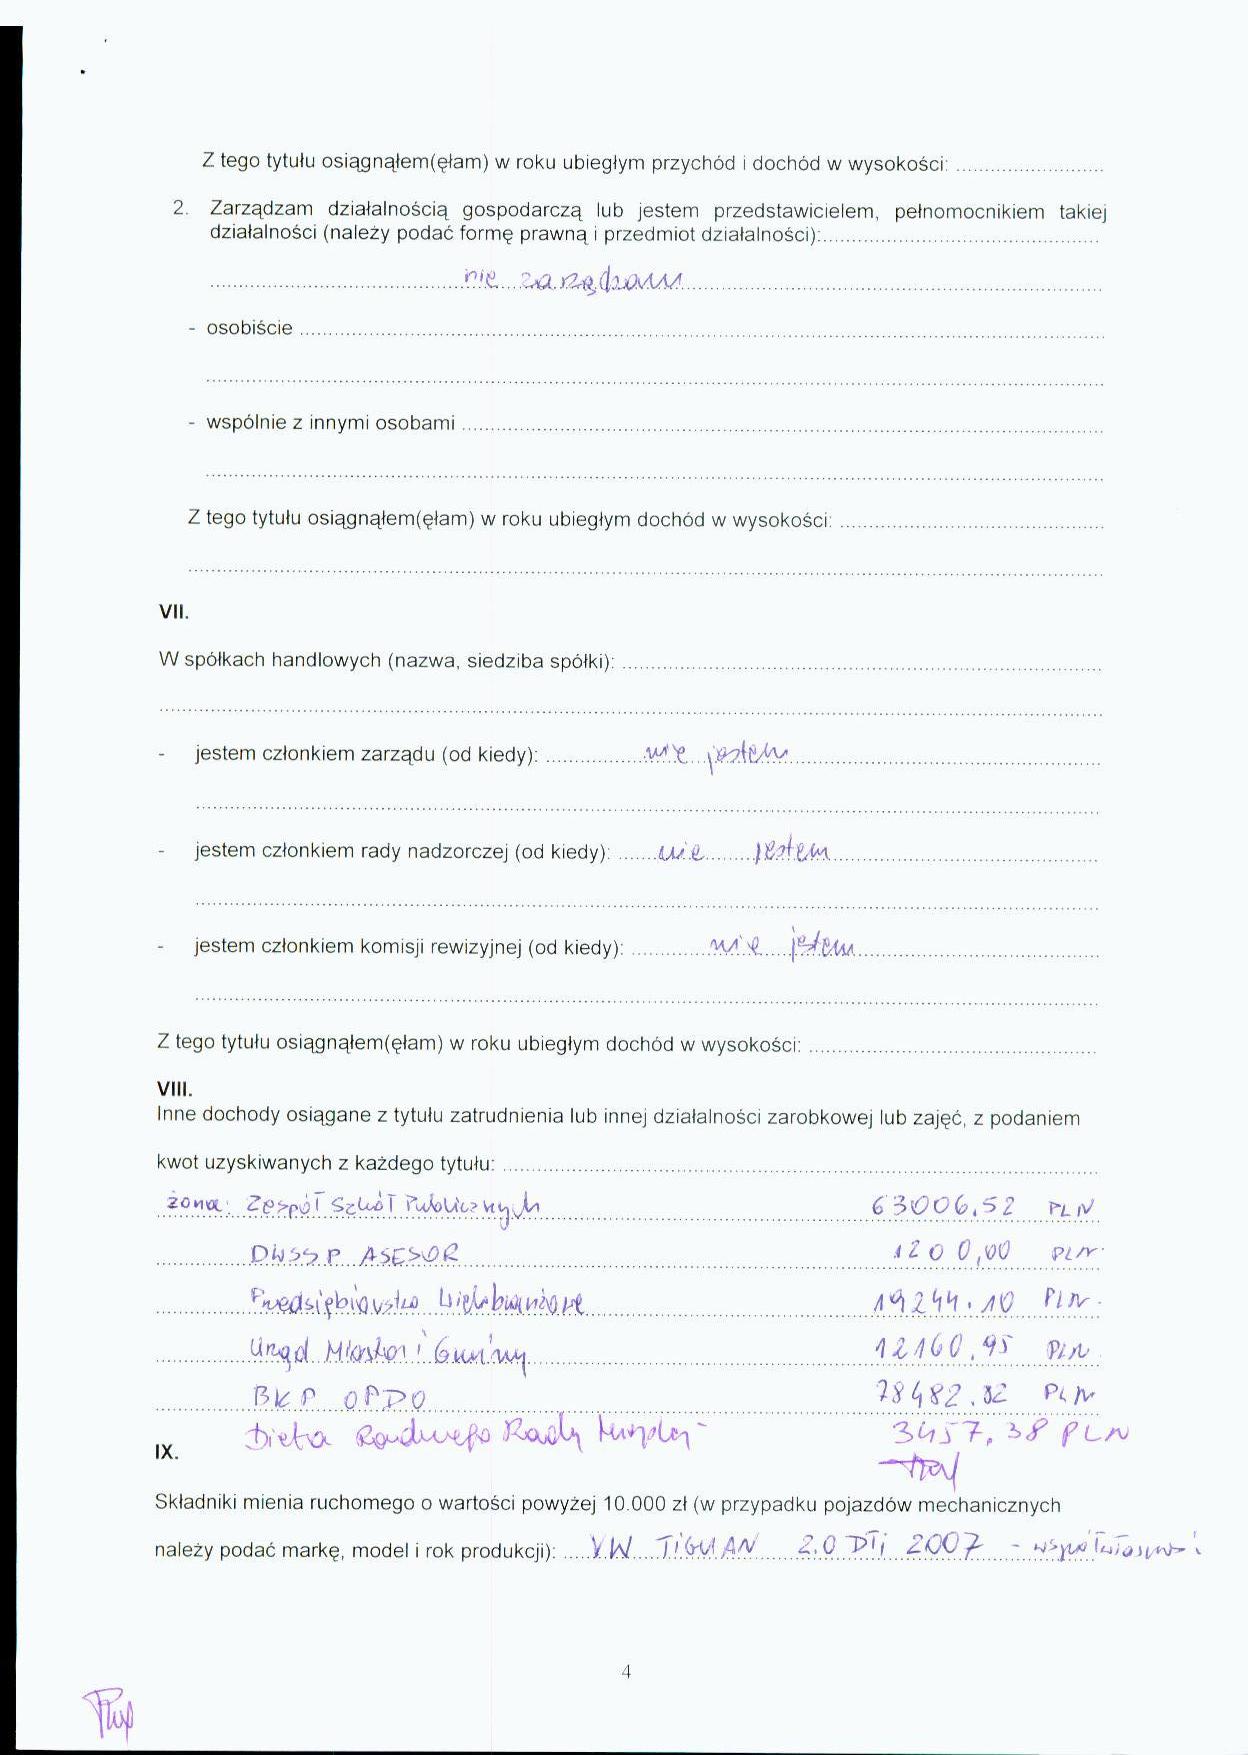 Z tego tytułu osiągnąłem(ęłam) w roku ubiegłym przychód i dochód w wysokości: ..........................
2. Zarządzam działalnością gospodarczą lub jestem przedstawicielem, pełnomocnikiem takiej
działalności (należy podać formę prawną i przedmiot działalności):..........................
nie zarządzam
- osobiście ..........................
- wspólnie z innymi osobami ..........................
Z tego tytułu osiągnąłem(ęłam) w roku ubiegłym dochód w wysokości: ..........................
VII.
W spółkach handlowych (nazwa, siedziba spółki): ..........................
- jestem członkiem zarządu (od kiedy): nie jestem
- jestem członkiem rady nadzorczej (od kiedy): nie jestem
- jestem członkiem komisji rewizyjnej (od kiedy): nie jestem
Z tego tytułu osiągnąłem(ęłam) w roku ubiegłym dochód w wysokości: ..........................
VIII.
Inne dochody osiągane z tytułu zatrudnienia lub innej działalności zarobkowej lub zajęć, z podaniem
kwot uzyskiwanych z każdego tytułu: ..........................
żona: Zespół Szkół Publicznych 63006,52 PLN
DWSSP ASESOR 1200,00 PLN
Przedsiębiorstwo Wielobranżowe 19244.10 PLN
Urząd Miasta i Gminy 12160,95 PLN
BKP OPDO 78482,82 PLN
Dieta Radnego Rady Miejskiej 3457,38 PLN
IX.
Składniki mienia ruchomego o wartości powyżej 10.000 zł (w przypadku pojazdów mechanicznych
należy podać markę, model i rok produkcji): VW TIGUAN 2.0 DTi 2007 - współwłasność
4